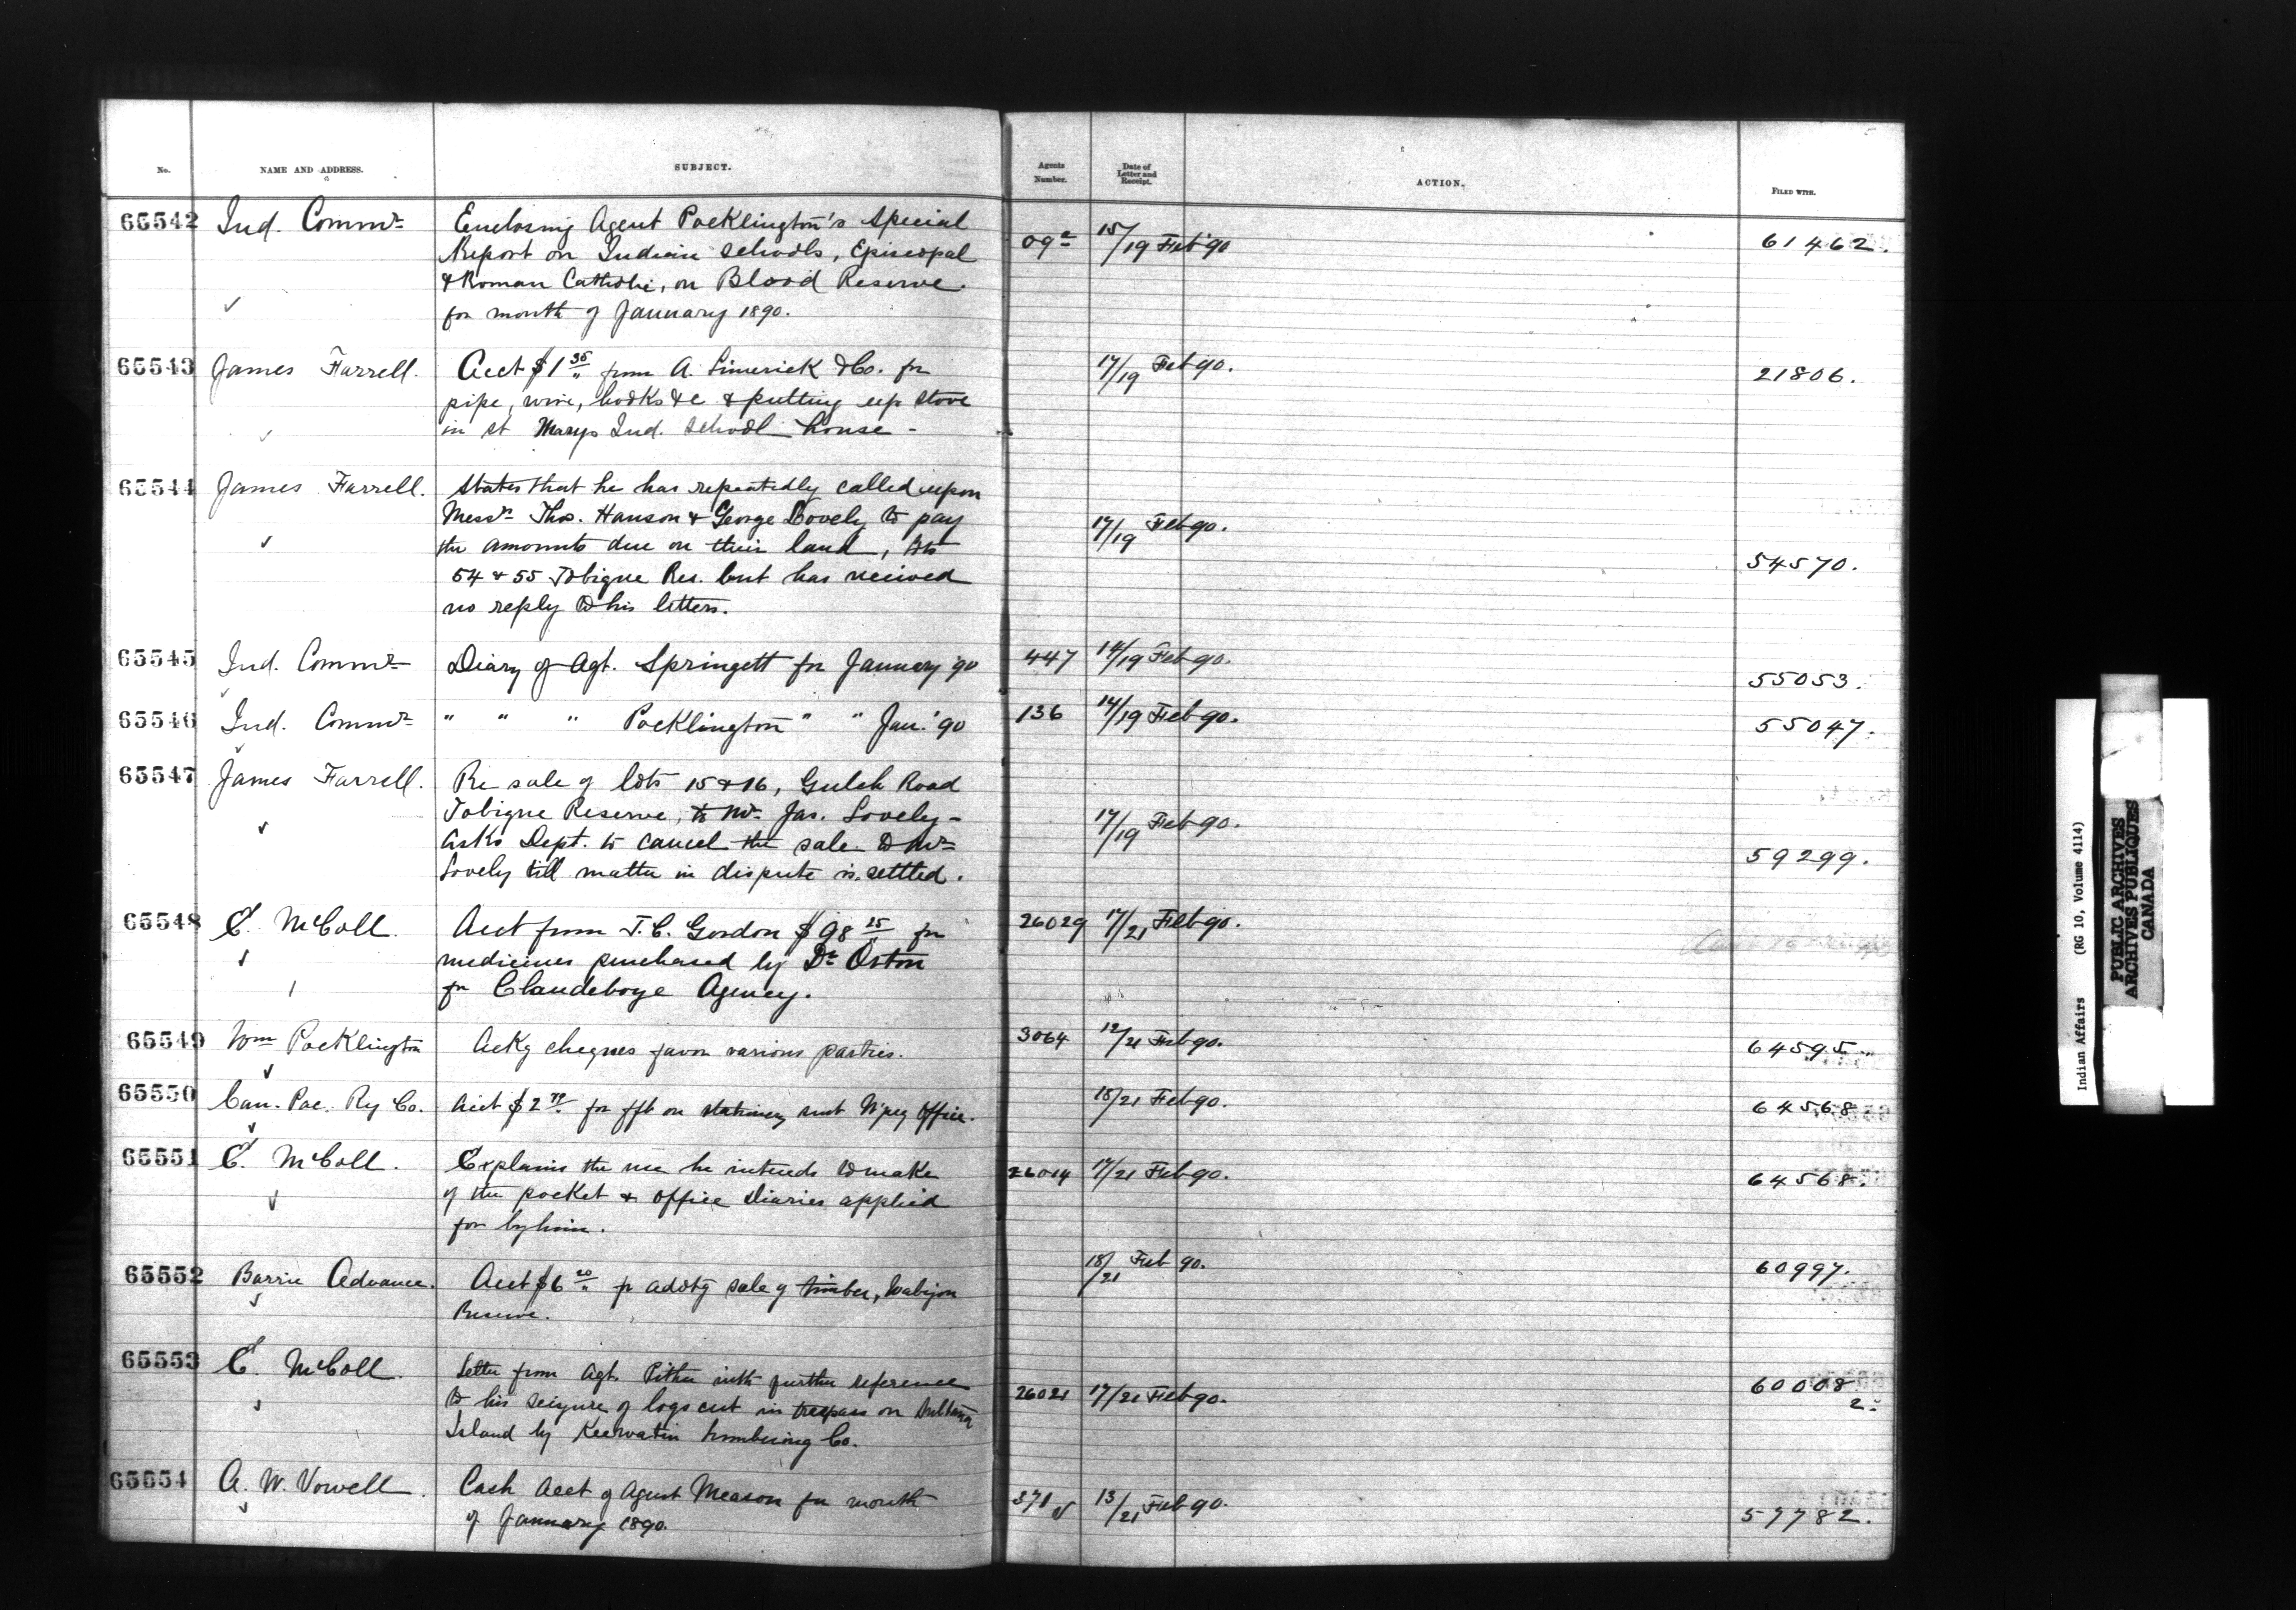 No. NAME AND ADDRESS. SUBJECT. Agents Number. Date of Letter and Receipt. ACTION. FILED WITH.
65542 Ind. Commr Enclosing Agent Pocklington's Special 09a 15/19 Feb '90 61462.
Report on Indian Schools, Episcopal
& Roman Catholic, on Blood Reserve.
for month of January 1890.
65543 James Farrell. Acct $1 35 from A. Limerick & Co. for 17/19 Feb 90. 21806.
pipe, wire, hooks &c & putting up stove
in St Marys Ind. School house -
65544 James Farrell. States that he has repeatedly called upon
Messrs Thos. Hanson & George Lovely to pay 17/19 Feb 90.
the amounts due on their land, lots 54570.
54 & 55 Tobique Res. but has received
no reply to his letters.
65545 Ind. Commr Diary of Agt. Springett for January '90 447 14/19 Feb 90. 55053.
65546 Ind. Commr " " " Pocklington " " Jan. '90 136 14/19 Feb 90. 55047.
65547 James Farrell. Re sale of lots 15 & 16, Gulch Road
Tobique Reserve, to Mr Jas. Lovely - 17/19 Feb 90.
Asks Dept. to cancel the sale to Mr 59299.
Lovely till matter in dispute is settled.
65548 E. McColl. Acct from J. C. Gordon $98 25 for 26029 17/21 Feb 90.
medicines purchased by Dr Orton
for Clandeboye Agency.
65549 Wm Pocklington Ackg cheques favor various parties. 3064 12/21 Feb 90. 64595
65550 Can. Pac. Ry Co. Acct $2 for frt on stationery sent W'peg Office. 18/21 Feb 90. 64568
65551 E. McColl. Explains the use he intends to make 26014 17/21 Feb 90. 64568.
of the pocket & office Diaries applied
for by him.
65552 Barrie Advance. Acct $6 20 for advtg sale of timber, Wabigon 18/21 Feb 90. 60997.
Reserve.
65553 E. McColl. Letter from Agt. Pither with further reference 60008
to his seizure of logs cut in trespass on Sultana 26021 17/21 Feb 90. 2
Island by Keewatin Lumbering Co.
65554 A. W. Vowell. Cash Acct of Agent Meason for month 371 13/21 Feb 90. 57782.
of January 1890.
Indian Affairs (RG 10, Volume 4114)
PUBLIC ARCHIVES
ARCHIVES PUBLIQUES
CANADA